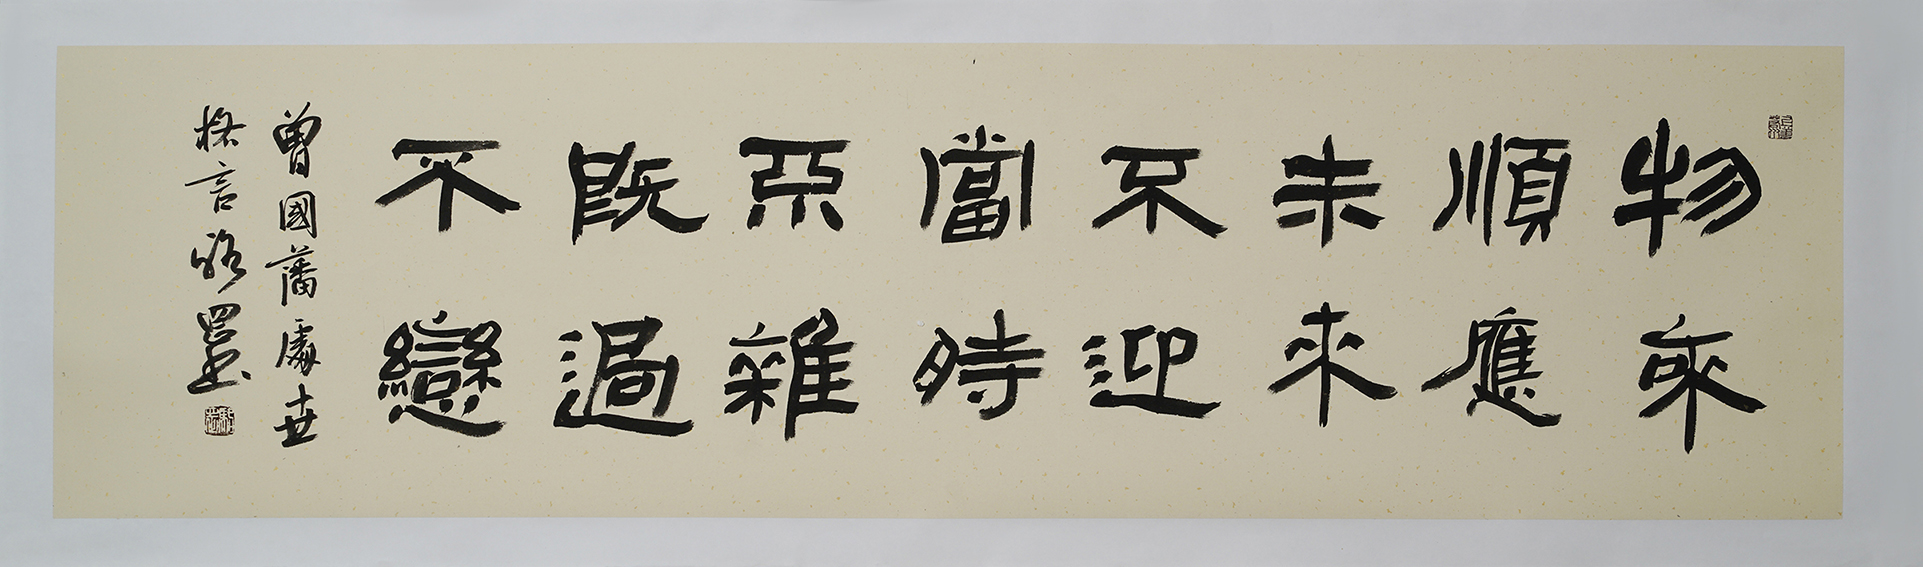 物來
順應
未來
不迎
當時
不雜
既過
不戀
曾國藩處世
格言